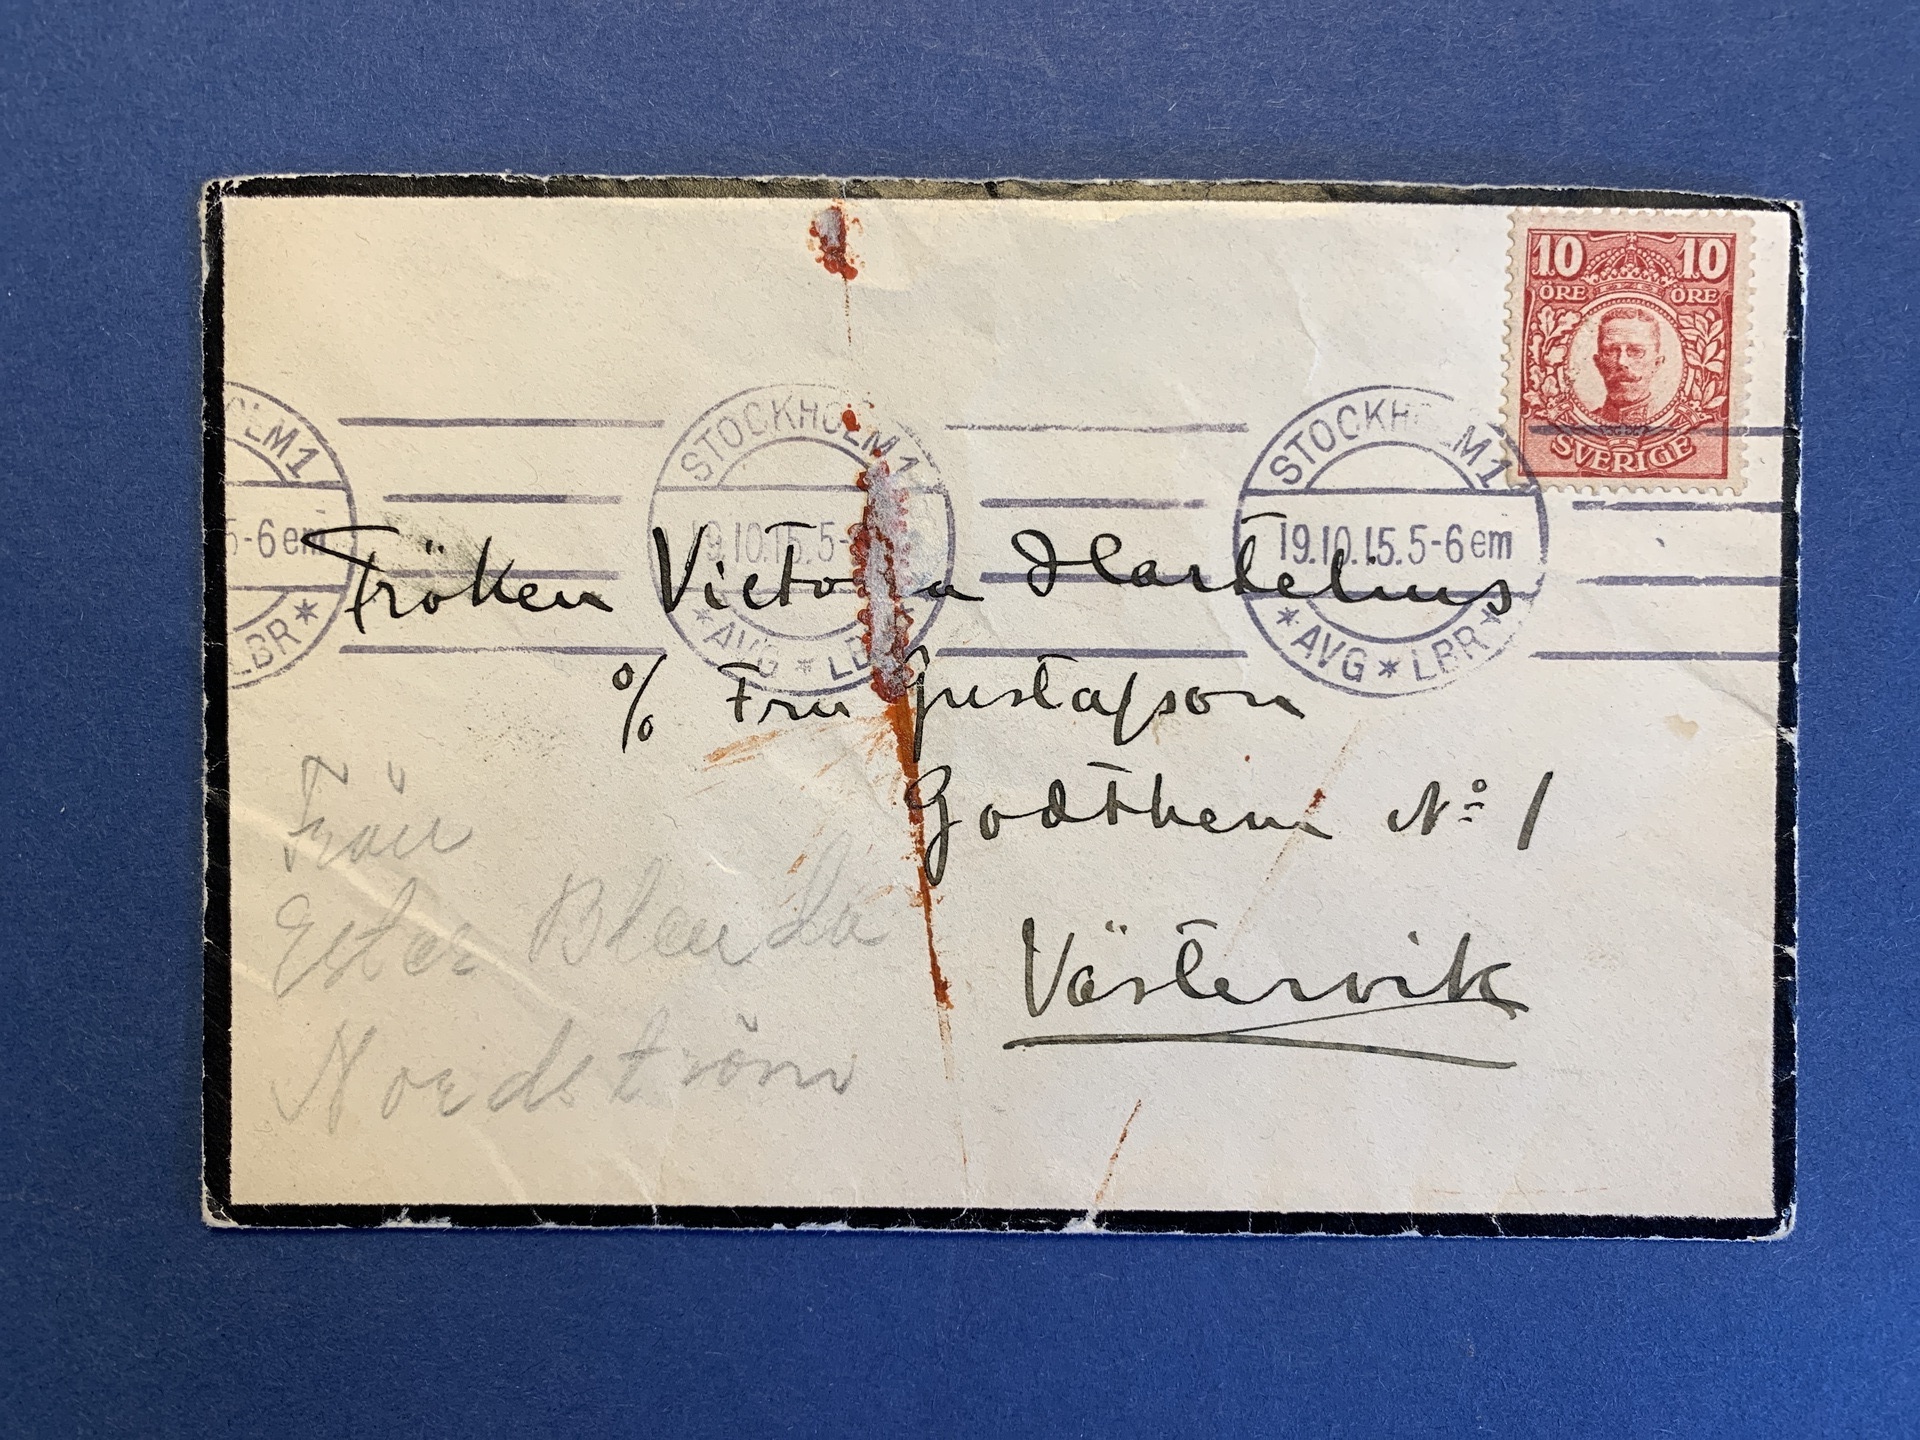 10 10
ÖRE ÖRE
SVERIGE
STOCKHOLM 1
5-6 em
LBR *
STOCKHOLM 1
19.10.15.5-
* AVG * LBR
STOCKHOLM 1
19.10.15.5-6 em
* AVG * LBR *
Fröken Victoria Hartelius
% Fru Gustafson
Godthem No 1
Västervik
Från
Ester Blenda
Nordström